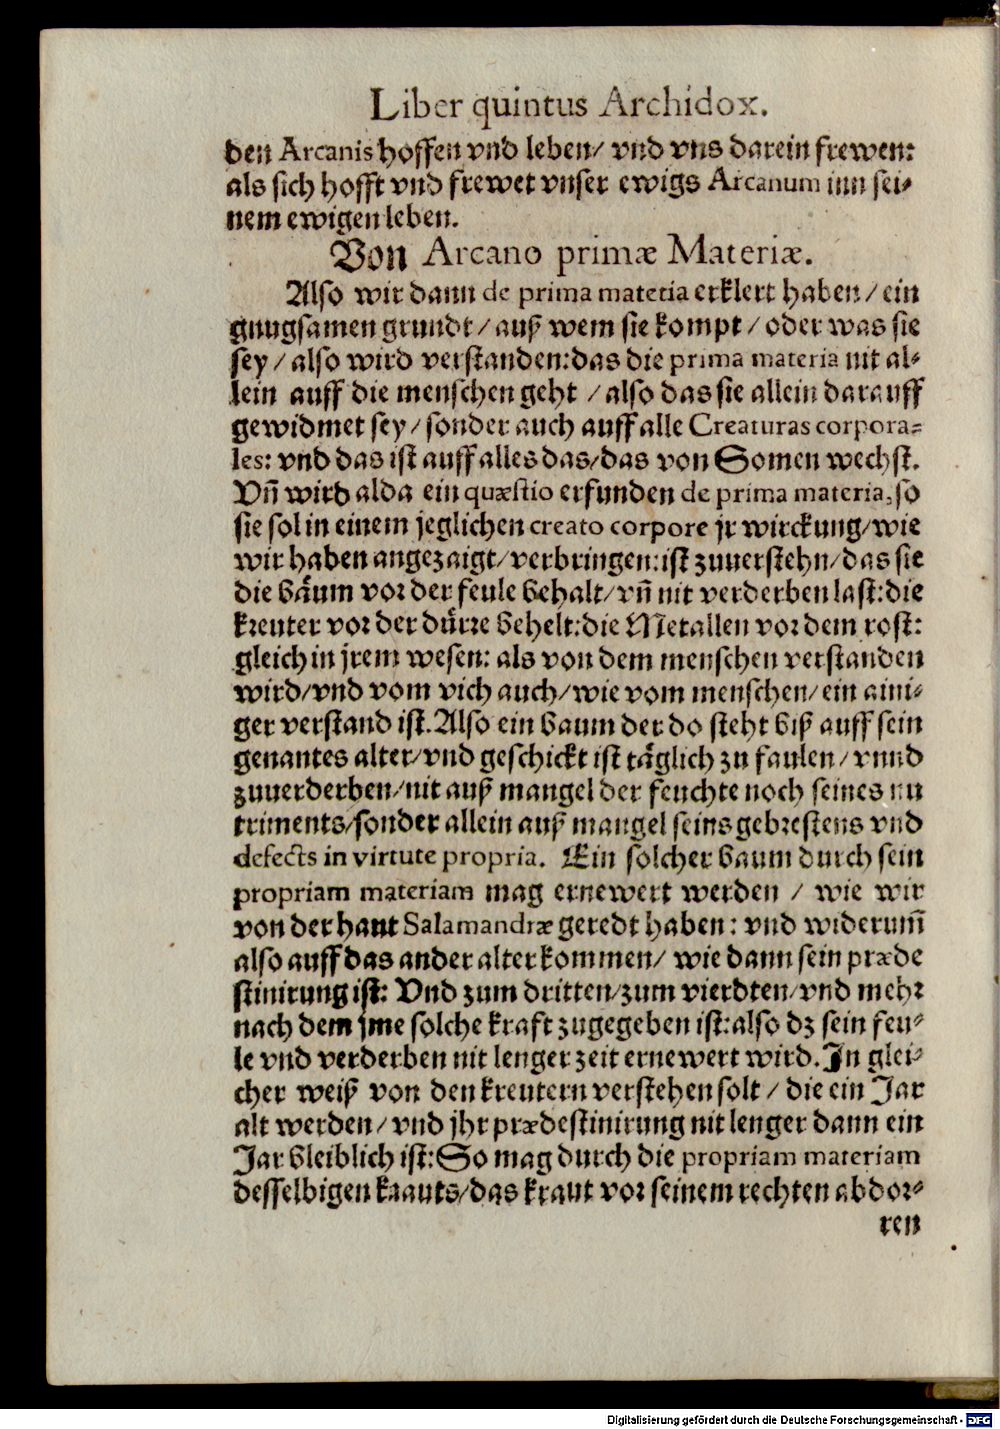 Liber quintus Archidox.
den Arcanis hoffen vnd leben/ vnd vns darein frewen:
als sich hofft vnd frewet vnser ewigs Arcanum inn sei⸗
nem ewigen leben.
Von Arcano primæ Materiæ.
Also wir dann de prima materia erklert haben/ ein
gnugsamen grundt/ auß wem sie kompt/ oder was sie
sey/ also wird verstanden: das die prima materia nit al⸗
lein auff die menschen geht / also das sie allein darauff
gewidmet sey/ sonder auch auff alle Creaturas corpora⸗
les: vnd das ist auff alles das/das von Somen wechst.
Vn̄ wird alda ein quæstio erfunden de prima materia, so
sie sol in einem jeglichen creato corpore jr wirckung/wie
wir haben angezaigt/ verbringen: ist zuuerstehn/das sie
die bäum vor der feule behalt/vn̄ nit verderben last: die
kreuter vor der dürre behelt: die Metallen vor dem rost:
gleich in jrem wesen: als von dem menschen verstanden
wird/vnd vom vich auch/wie vom menschen/ein aini⸗
ger verstand ist. Also ein baum der do steht biß auff sein
genantes alter/vnd geschickt ist täglich zu faulen/ vnnd
zuuerderben/nit auß mangel der feuchte noch seines nu
triments/sonder allein auß mangel seins gebrestens vnd
defects in virtute propria. Ein solcher baum durch sein
propriam materiam mag ernewert werden / wie wir
von der haut Salamandræ geredt haben: vnd widerum̄
also auff das ander alter kommen/ wie dann sein præde
stinirung ist: Vnd zum dritten/zum vierdten/vnd mehr
nach dem jme solche kraft zugegeben ist: also dz sein feu⸗
le vnd verderben nit lenger zeit ernewert wird. In glei⸗
cher weiß von den kreutern verstehen solt / die ein Jar
alt werden/ vnd jhr prædestinirung nit lenger dann ein
Jar bleiblich ist: So mag durch die propriam materiam
desselbigen krauts/das kraut vor seinem rechten abdor⸗
ren
Digitalisierung gefördert durch die Deutsche Forschungsgemeinschaft - DFG